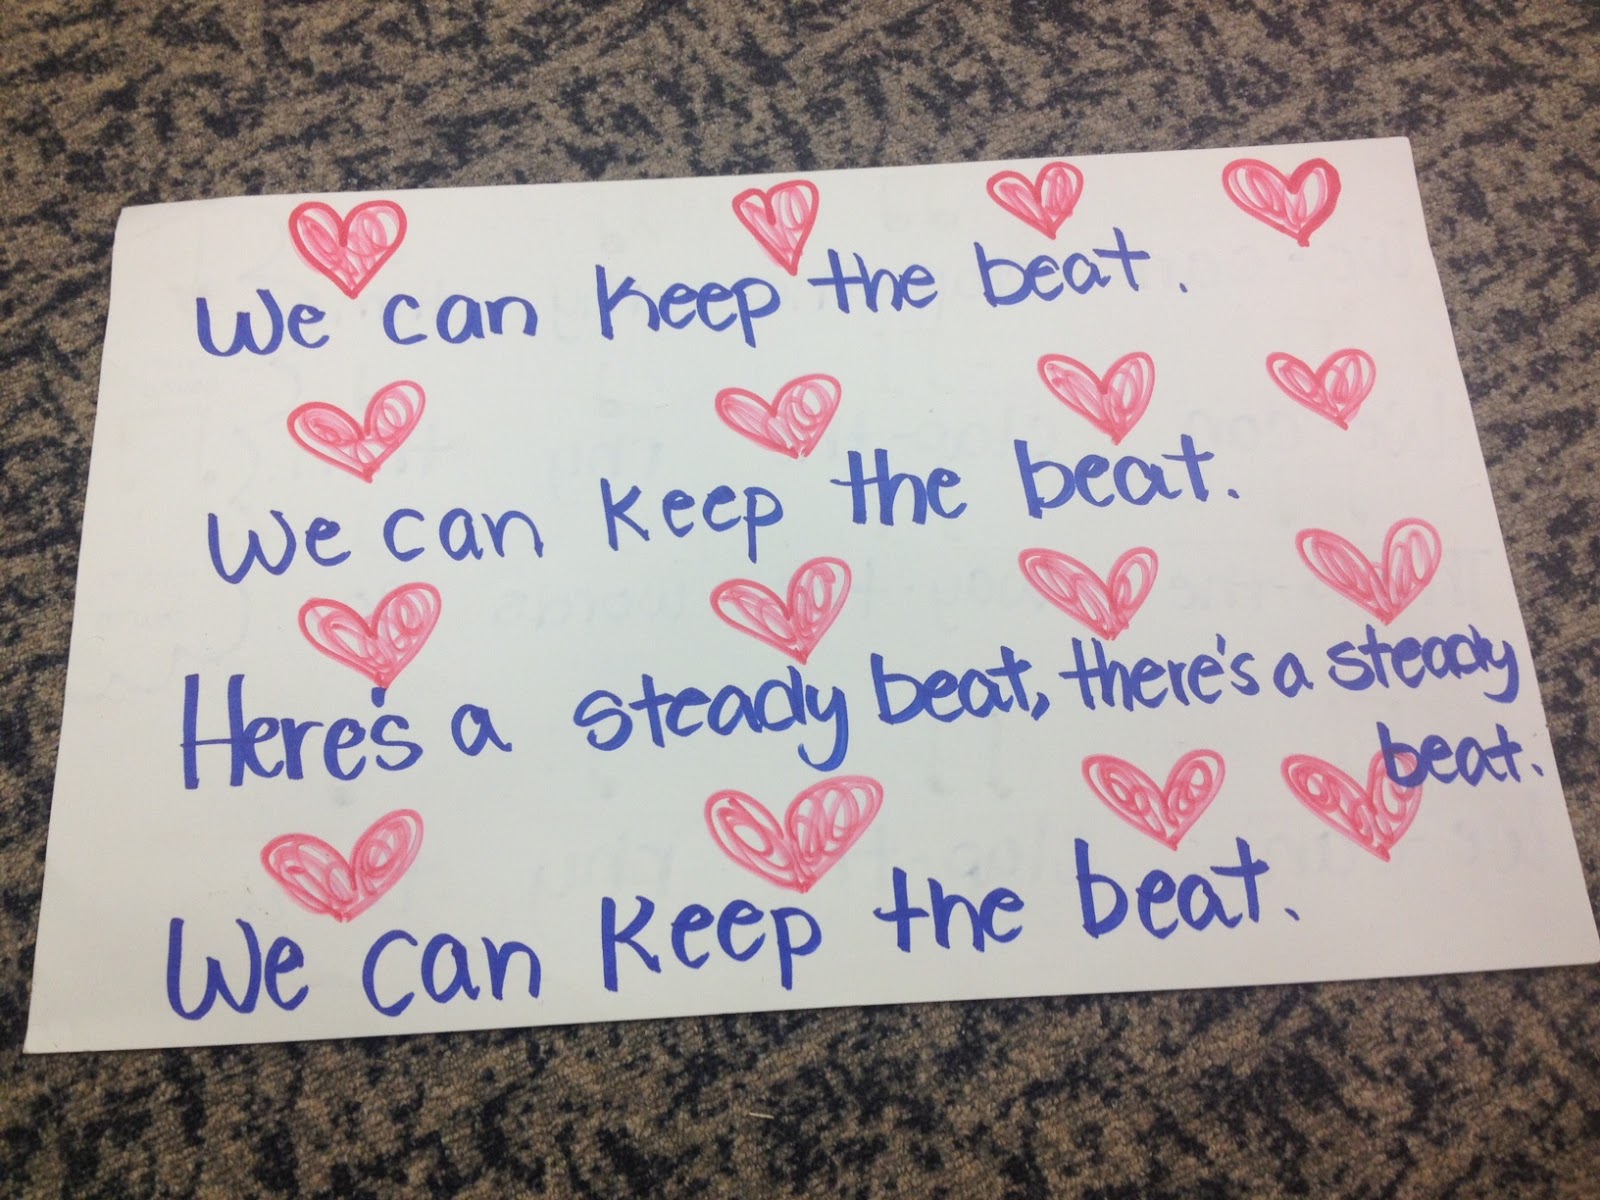 We can keep the beat.
We can keep the beat.
Here's a steady beat, there's a steady
beat.
We can keep the beat.